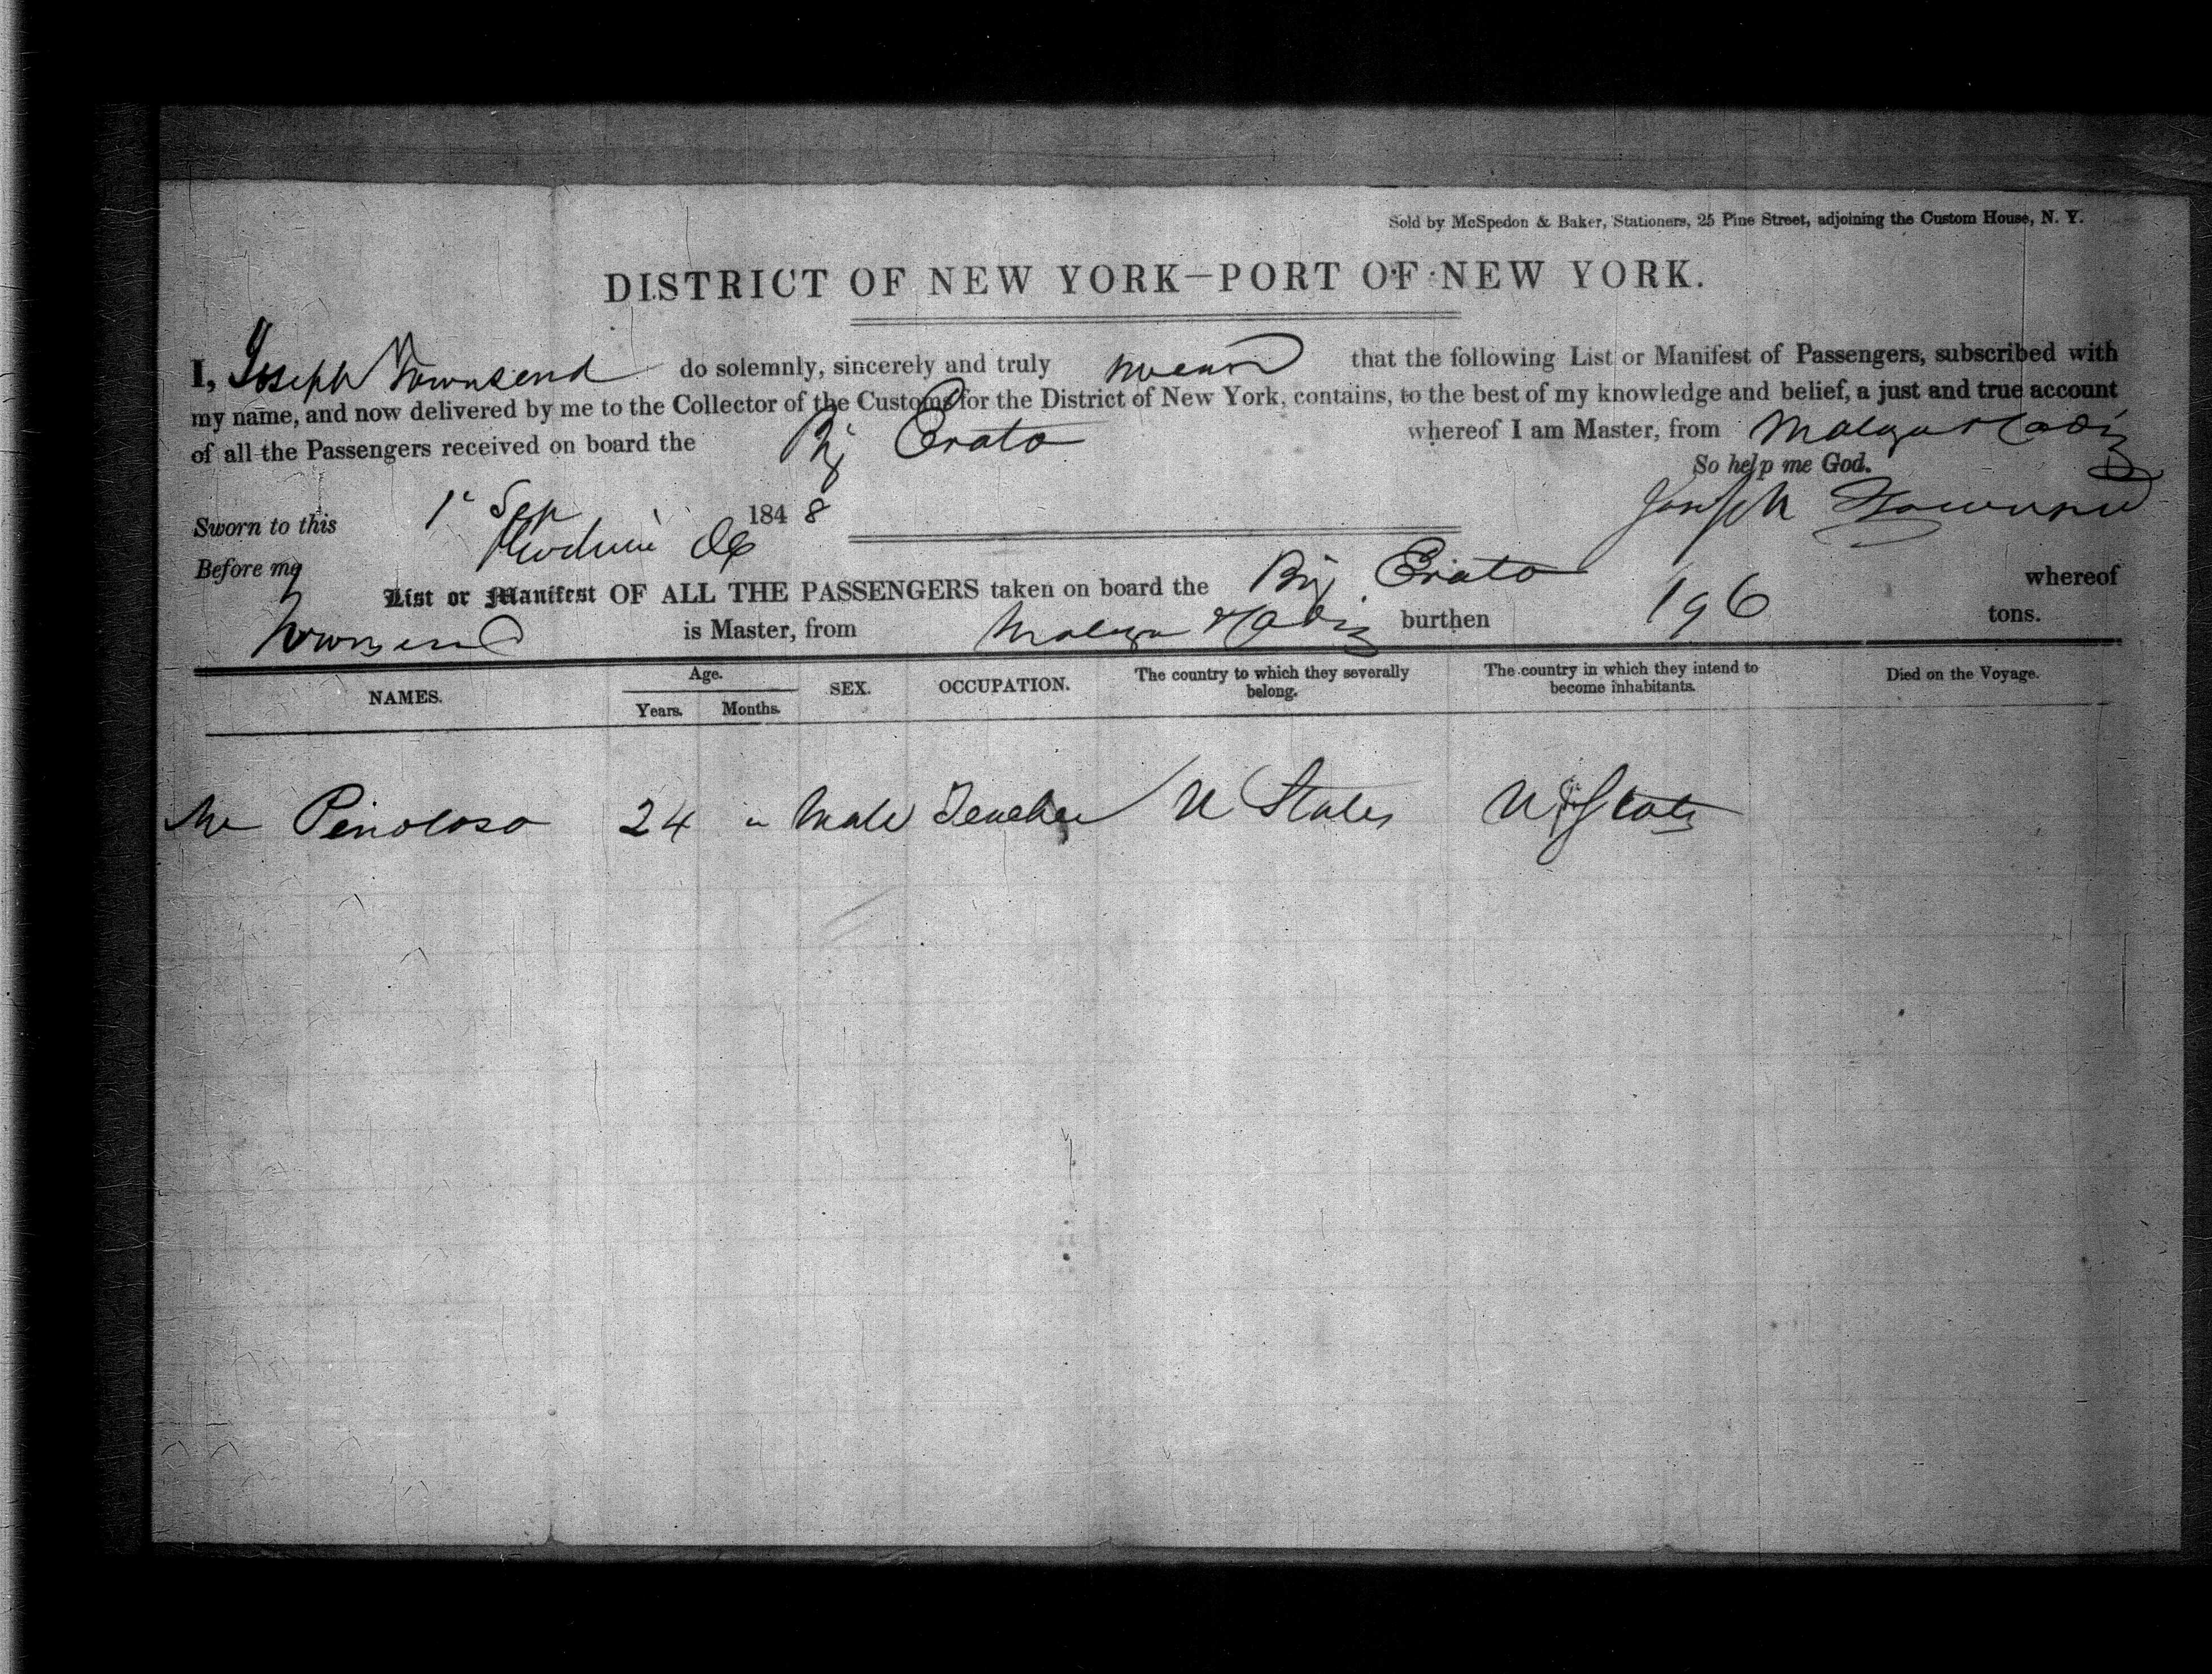 Sold by McSpedon & Baker, Stationers, 25 Pine Street, adjoining the Custom House, N. Y.
DISTRICT OF NEW YORK—PORT OF NEW YORK.
I, Joseph Townsend do solemnly, sincerely and truly swear that the following List or Manifest of Passengers, subscribed with
my name, and now delivered by me to the Collector of the Customs for the District of New York, contains, to the best of my knowledge and belief, a just and true account
of all the Passengers received on board the Brig Erato whereof I am Master, from Malaga & Cadiz
So help me God.
Sworn to this 1 Sep 1848 Joseph Townsend
Before me
List or Manifest OF ALL THE PASSENGERS taken on board the Brig Erato whereof
Townsend is Master, from Malaga & Cadiz burthen 196 tons.
NAMES. Age. Years. Months. SEX. OCCUPATION. The country to which they severally belong. The country in which they intend to become inhabitants. Died on the Voyage.
Mr Penolosa 24 " Male Teacher U States U States